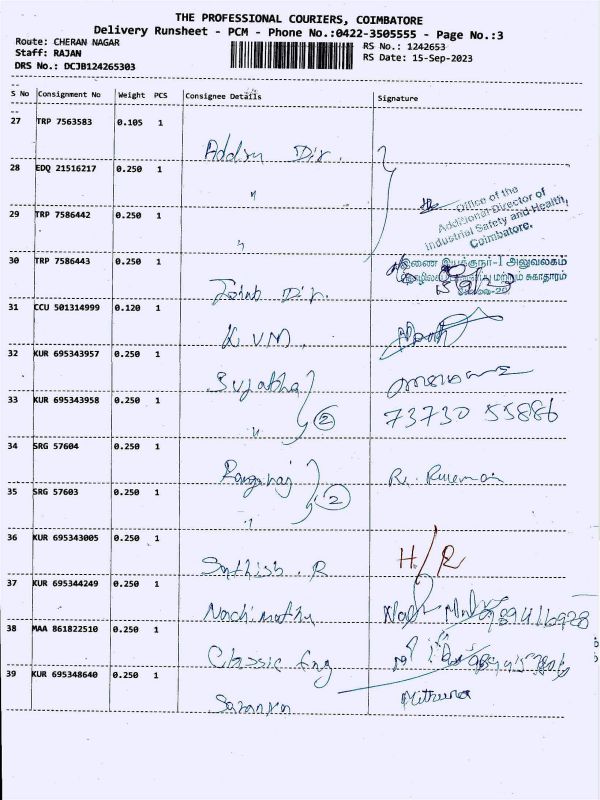 THE PROFESSIONAL COURIERS, COIMBATORE
Delivery Runsheet - PCM - Phone No.:0422-3505555 - Page No.:3
Route: CHERAN NAGAR
Staff: RAJAN
DRS No.: DCJB124265303
RS No.: 1242653
RS Date: 15-Sep-2023
S No Consignment No Weight PCS Consignee Details Signature
27 TRP 7563583 0.105 1
28 EDQ 21516217 0.250 1
Office of the
Additional Director of
Industrial Safety and Health,
Coimbatore.
29 TRP 7586442 0.250 1
30 TRP 7586443 0.250 1
இணை இயக்குநர்-1 அலுவலகம்
மற்றும் சுகாதாரம்
Joint Dir.
31 CCU 501314999 0.120 1
K.V.M.
32 KUR 695343957 0.250 1
Sujatha
33 KUR 695343958 0.250 1
" 2 73730 55886
34 SRG 57604 0.250 1
Rangaraj
35 SRG 57603 0.250 1
" 2
36 KUR 695343005 0.250 1
Sathish. R H/R
37 KUR 695344249 0.250 1
Nachimuthu
38 MAA 861822510 0.250 1
Classic Eng
39 KUR 695348640 0.250 1
Mithuna